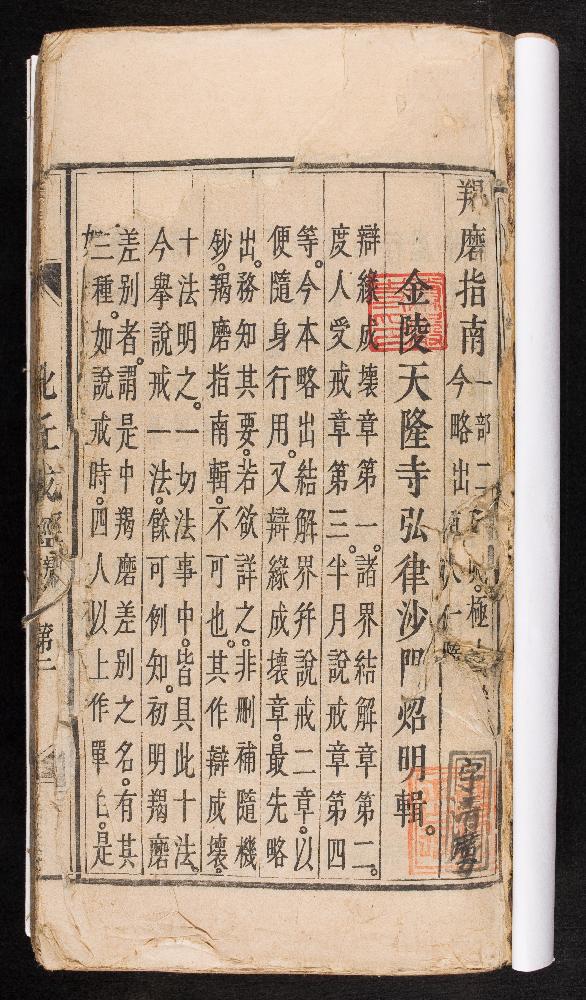 羯磨指南
一部二
今略出
極
金陵天隆寺弘律沙門炤明輯。
辯緣成壞章第一。諸界結解章第二。
度人受戒章第三。半月說戒章第四
等。今本略出結解界并說戒二章。以
便隨身行用。又辯緣成壞章。最先略
出。務知其要。若欲詳之。非刪補隨機
鈔。羯磨指南輯。不可也。其作辯成壞。
十法明之。一切法事中。皆具此十法。
今舉說戒一法。餘可例知。初明羯磨
差別者。謂是中羯磨差別之名。有其
三種。如說戒時。四人以上作單白。是
第二